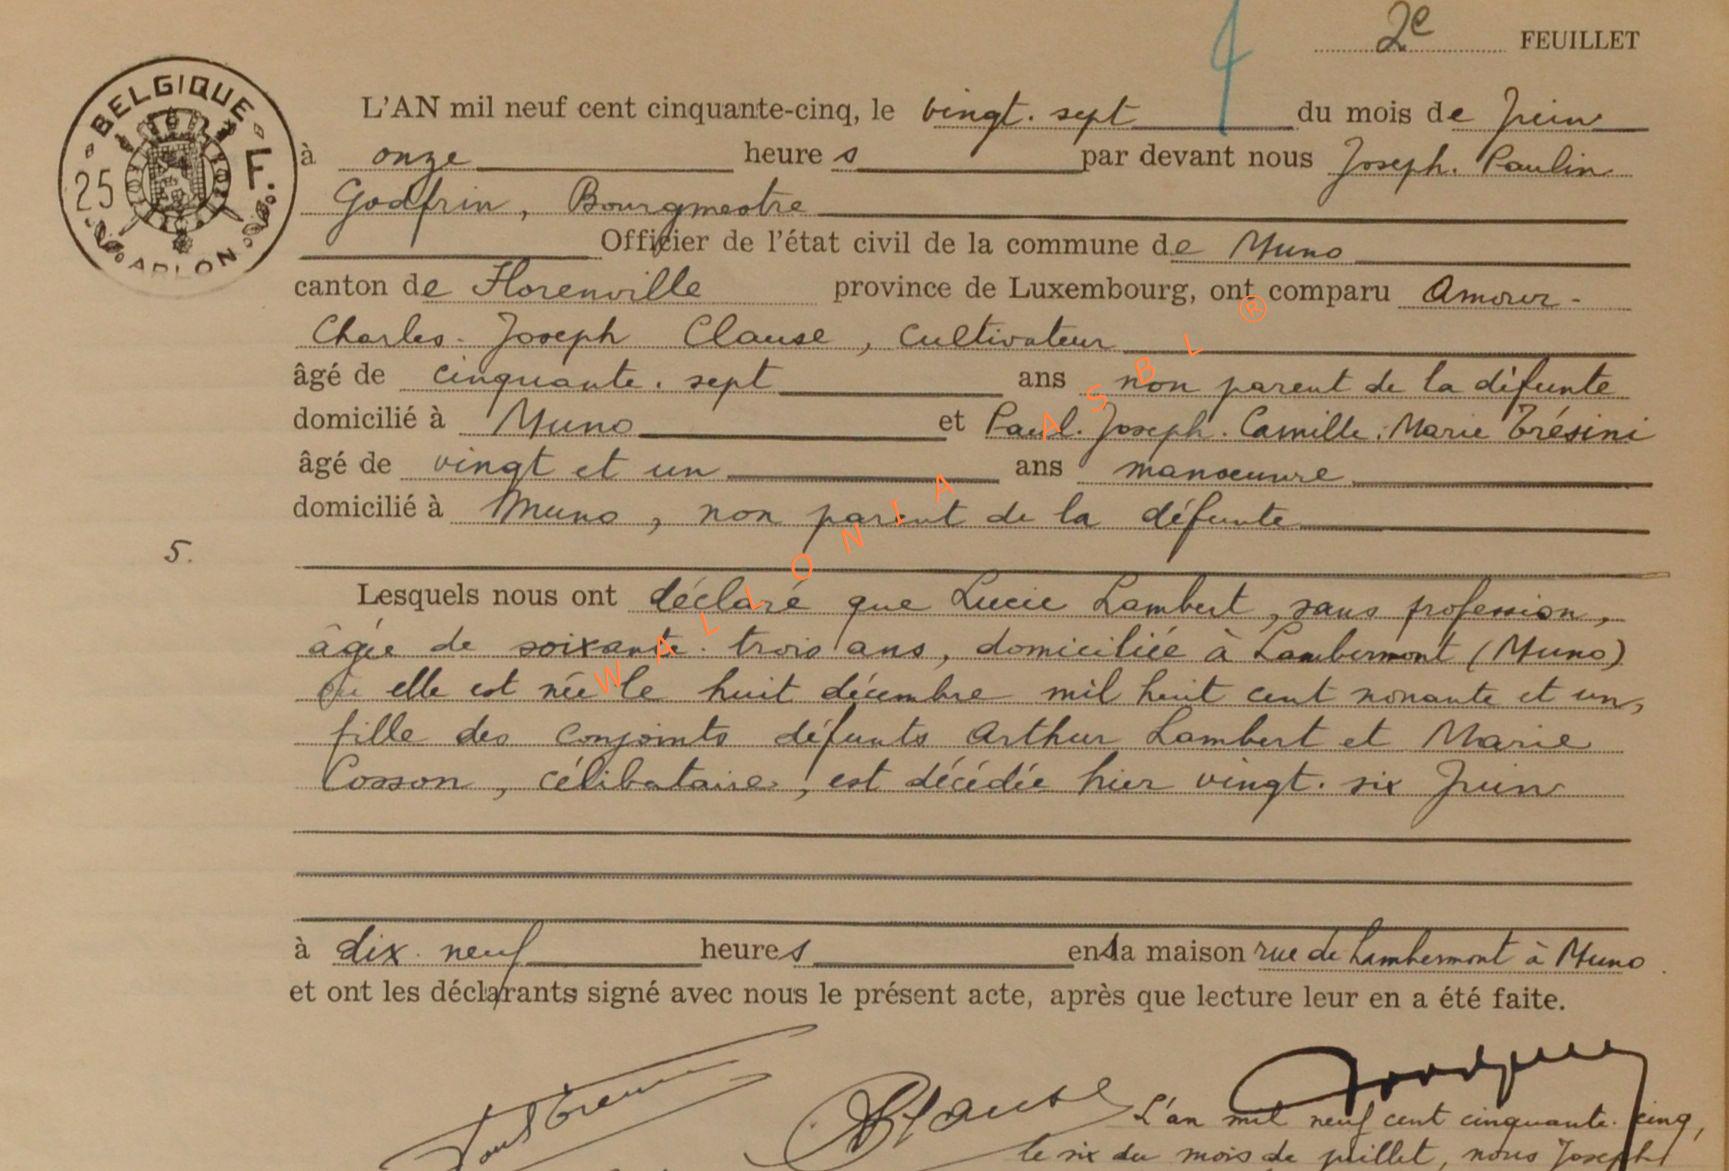 2e FEUILLET
BELGIQUE
25 F.
ARLON
L'AN mil neuf cent cinquante-cinq, le vingt-sept du mois de Juin
à onze heures par devant nous Joseph-Paulin
Godfrin, Bourgmestre
Officier de l'état civil de la commune de Muno
canton de Florenville province de Luxembourg, ont comparu Amour-
Charles-Joseph Clause, cultivateur
âgé de cinquante-sept ans non parent de la défunte
domicilié à Muno et Paul-Joseph-Camille-Marie Trésini
âgé de vingt et un ans manoeuvre
domicilié à Muno, non parent de la défunte
5.
Lesquels nous ont déclaré que Lucie Lambert, sans profession,
âgée de soixante-trois ans, domiciliée à Lambermont (Muno)
où elle est née le huit décembre mil huit cent nonante et un,
fille des conjoints défunts Arthur Lambert et Marie
Cosson, célibataire, est décédée hier vingt-six Juin
à dix-neuf heures en sa maison rue de Lambermont à Muno.
et ont les déclarants signé avec nous le présent acte, après que lecture leur en a été faite.
Clause
L'an mil neuf cent cinquante-cinq,
le six du mois de juillet, nous Joseph
WALLONIA ASBL ®